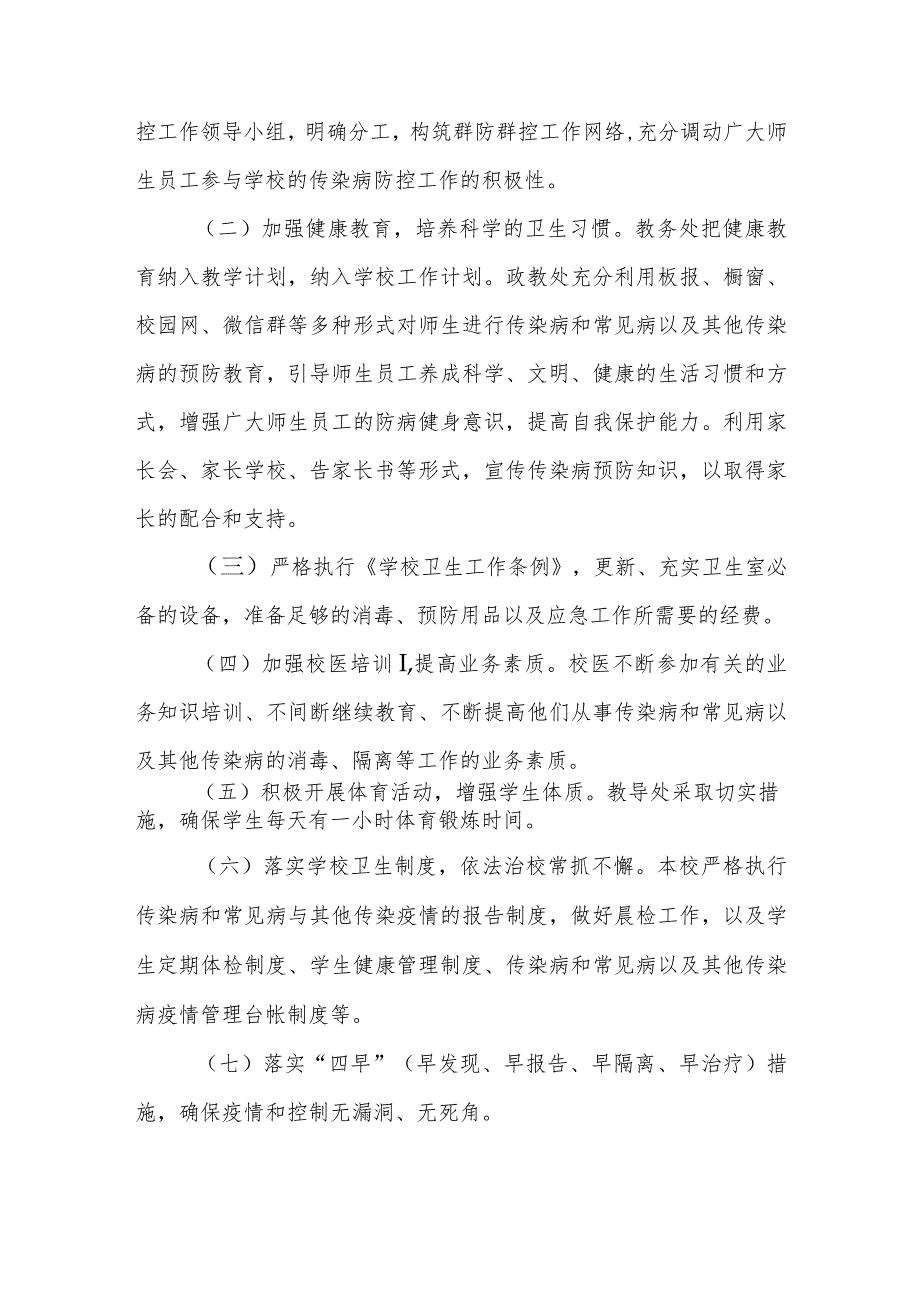 控工作领导小组，明确分工，构筑群防群控工作网络,充分调动广大师
生员工参与学校的传染病防控工作的积极性。
（二）加强健康教育，培养科学的卫生习惯。教务处把健康教
育纳入教学计划，纳入学校工作计划。政教处充分利用板报、橱窗、
校园网、微信群等多种形式对师生进行传染病和常见病以及其他传染
病的预防教育，引导师生员工养成科学、文明、健康的生活习惯和方
式，增强广大师生员工的防病健身意识，提高自我保护能力。利用家
长会、家长学校、告家长书等形式，宣传传染病预防知识，以取得家
长的配合和支持。
（三）严格执行《学校卫生工作条例》，更新、充实卫生室必
备的设备，准备足够的消毒、预防用品以及应急工作所需要的经费。
（四）加强校医培训I,提高业务素质。校医不断参加有关的业
务知识培训、不间断继续教育、不断提高他们从事传染病和常见病以
及其他传染病的消毒、隔离等工作的业务素质。
（五）积极开展体育活动，增强学生体质。教导处采取切实措
施，确保学生每天有一小时体育锻炼时间。
（六）落实学校卫生制度，依法治校常抓不懈。本校严格执行
传染病和常见病与其他传染疫情的报告制度，做好晨检工作，以及学
生定期体检制度、学生健康管理制度、传染病和常见病以及其他传染
病疫情管理台帐制度等。
（七）落实“四早”（早发现、早报告、早隔离、早治疗）措
施，确保疫情和控制无漏洞、无死角。